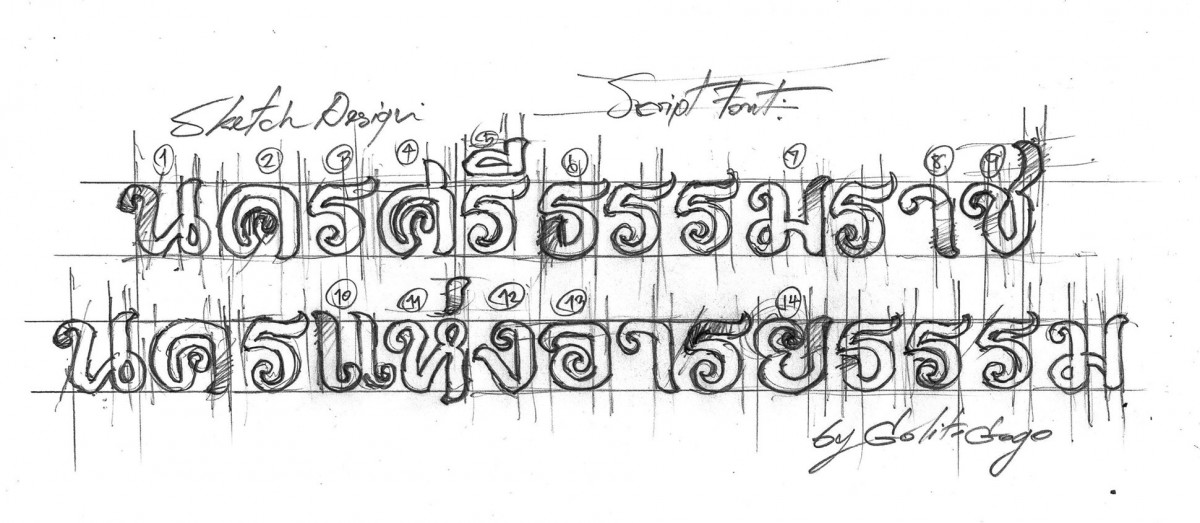 Sketch Design Script Font:
1 2 3 4 5 6 7 8 9
นครศรีธรรมราช
10 11 12 13 14
นครแห่งอารยธรรม
by Gogo